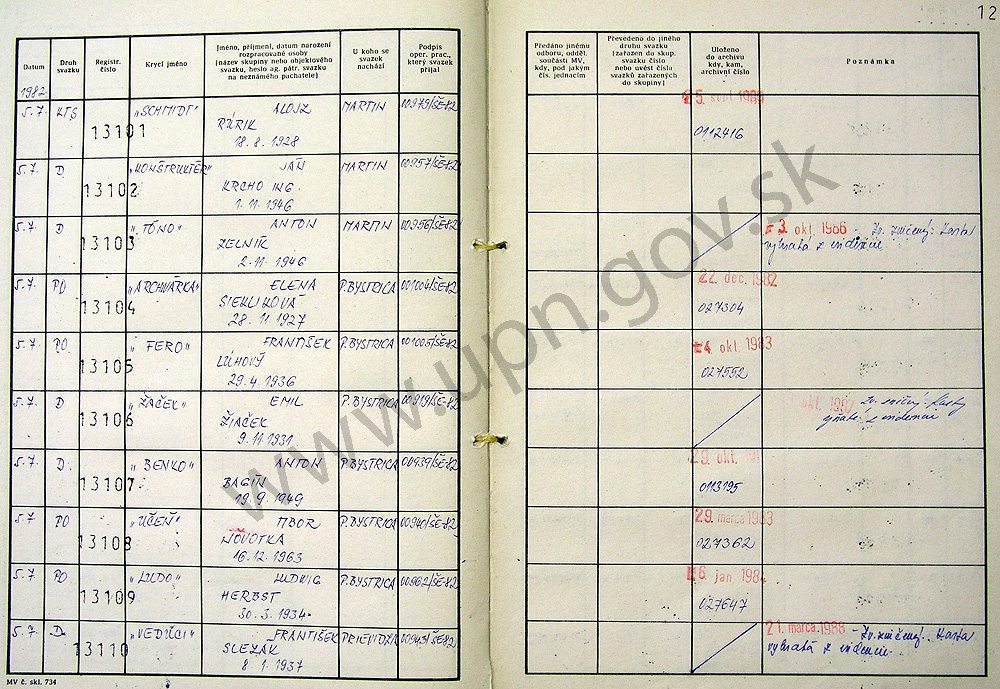 12
Datum
Druh svazku
Registr. číslo
Krycí jméno
Jméno, příjmení, datum narození
rozpracované osoby
(název skupiny nebo objektového
svazku, heslo ag. pátr. svazku
na neznámého pachatele)
U koho se
svazek
nachází
Podpis
oper. prac.,
který svazek
přijal
Předáno jinému
odboru, odděl.
součásti MV,
kdy, pod jakým
čís. jednacím
Převedeno do jiného
druhu svazku
(zařazen do skup.
svazku číslo
nebo uvést číslo
svazků zařazených
do skupiny)
Uloženo
do archivu
kdy, kam,
archivní číslo
Poznámka
1982
5.7. KTS 13101 "SCHMIDT" ALOJZ MARTIN 00979/ŠE-82
RÚRIK
18.8.1928
0112416
5.7. D 13102 "KONŠTRUKTÉR" JÁN MARTIN 00957/ŠE-82
KRCHO ING.
1.11.1946
5.7. D 13103 "TÓNO" ANTON MARTIN 00956/ŠE-82
ZELNÍK
2.11.1946
3. okt. 1986 - Zv. zničený. Karta
vybratá z evidencie
5.7. PO 13104 "ARCHIVÁRKA" ELENA P.BYSTRICA 001004/ŠE-82
SIEKLIKOVÁ
28.11.1927
22. dec. 1982
027304
5.7. PO 13105 "FERO" FRANTIŠEK P.BYSTRICA 001005/ŠE-82
LÚHOVÝ
29.4.1936
4. okt. 1983
027552
5.7. D 13106 "ŽIAČEK" EMIL P.BYSTRICA 00919/ŠE-82
ŽIAČEK
9.11.1931
5.7. D. 13107 "BENKO" ANTON P.BYSTRICA 00939/ŠE-82
BAGIN
19.9.1949
29. okt.
0113195
5.7 PO 13108 "UČEŇ" TIBOR P.BYSTRICA 00940/ŠE-82
NOVOTKA
16.12.1963
29. marca 1983
027362
5.7 PO 13109 "LUDO" LUDWIG P.BYSTRICA 00962/ŠE-82
HERBST
30.3.1934
6. jan. 1984
027647
5.7 D. 13110 "VEDÚCI" FRANTIŠEK PRIEVIDZA 00943/ŠE-82
SLEZÁK
8.1.1937
21. marca 1988 - Zv. zničený. Karta
vybratá z evidencie
MV č. skl. 734
www.upn.gov.sk